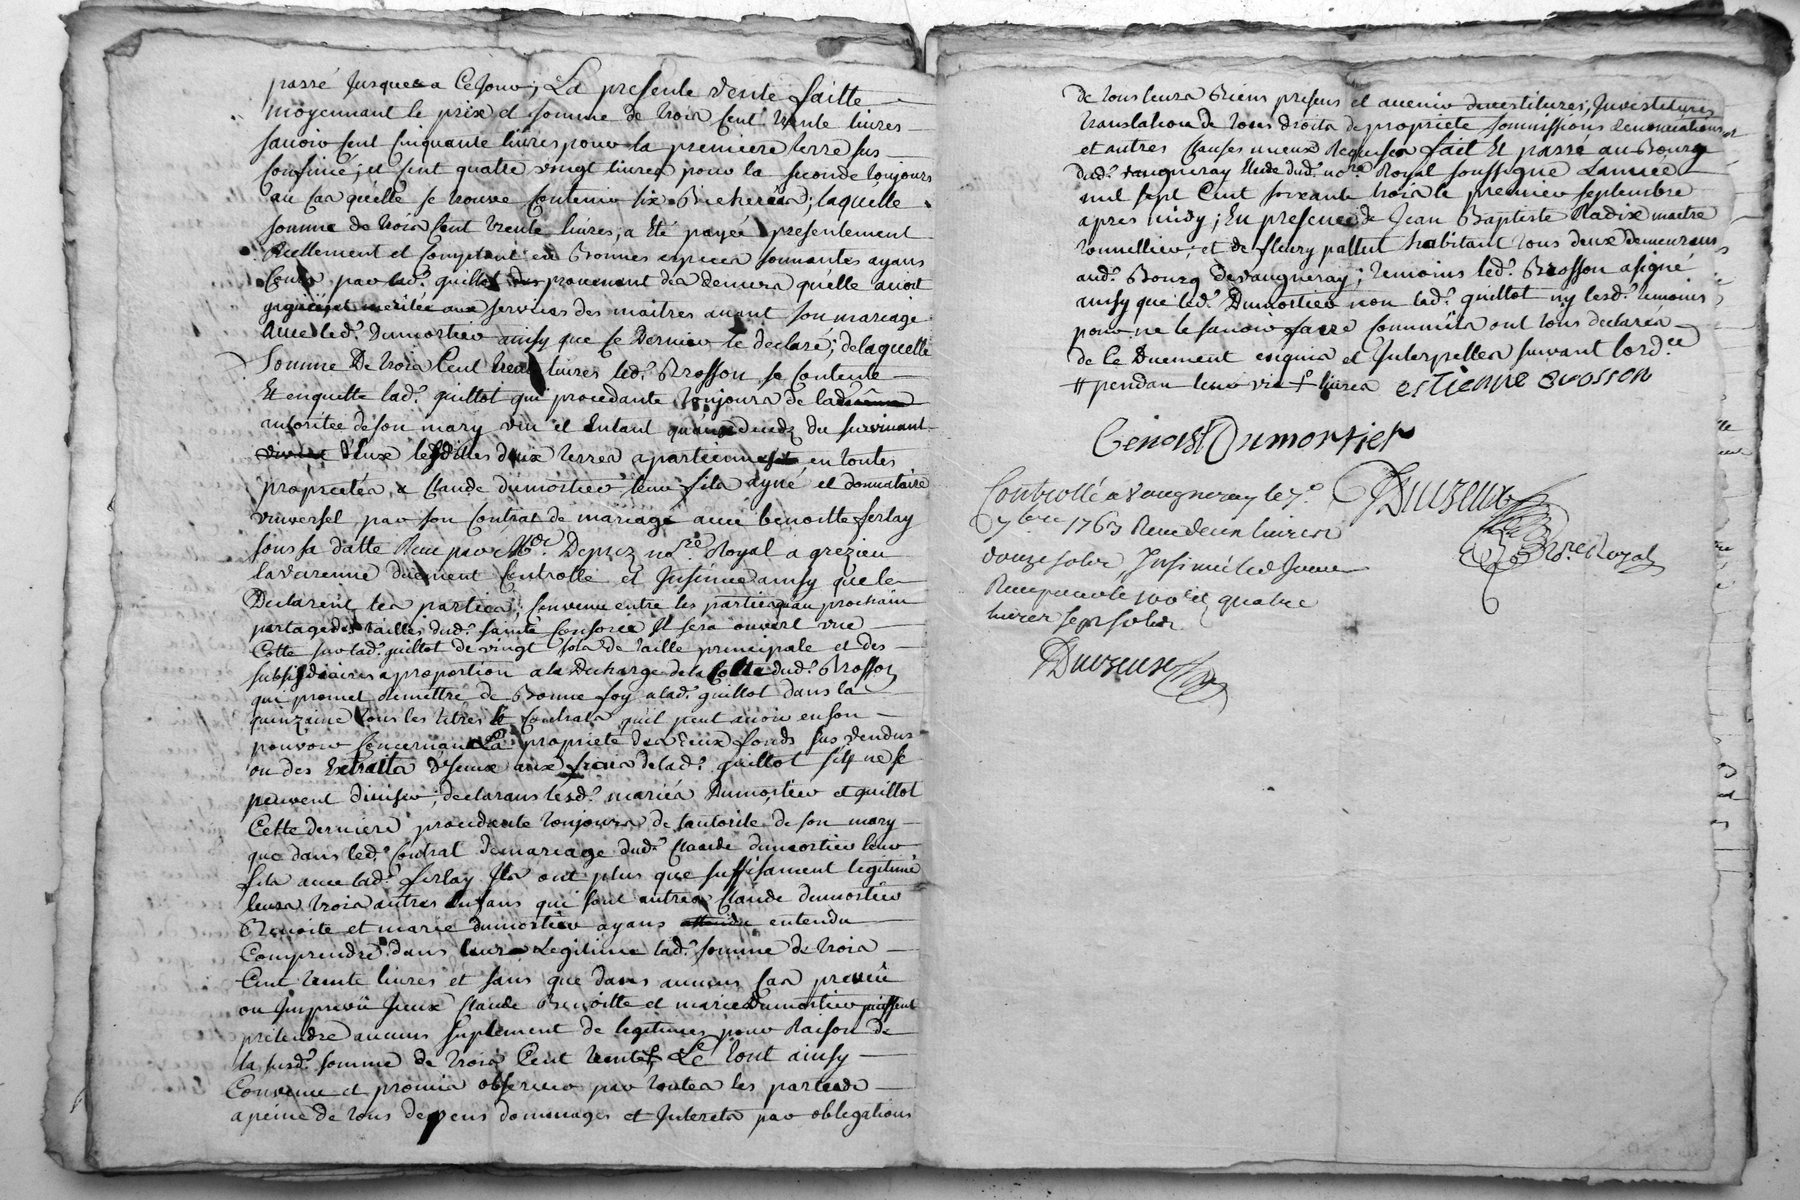 passé Jusques a Ce Jour; La presente vente faitte
moÿennant le prix et somme de trois Cent trente livres
sauoir Cent Cinquante livres pour la premiere terre sus
Confinée; et Cent quatre vingt livres pour la seconde toujours
au Cas quélle se trouve Contenir six Bicherées; laquélle
somme de trois Cent trente livres, a été payée presentement
Réellement et Comptant en Bonnes especes sonnantes ayans
Cours par lad.e guillot provenant des deniers quélle auoit
gagné et merités aux services des maitres auant son mariage
Auec led.t Dumortier ainsy que Ce Dernier le declare; de laquelle
Somme De trois Cent trente livres led.t Brosson se Contente
Et en quitte lad.e guillot qui procedante toujours de
autorité de son mary veut et Entant du survivant
d'Eux lesdittes deux terres apartiennent en toutes
proprietés, a Claude dumortier leur fils aÿné et donnataire
vniversel par son Contrat de mariage auec benoitte ferlay
sous sa datte Reçu par M.e Deprez no.re Royal a grezieu
lavarenne duement Controllé et Insinué ainsy que le
Declarent les parties; Convenu entre les parties quau prochain
partage des tailles dud.t sainte Consorce Il sera ouvert vne
Cotte sur lad.e guillot de vingt sols de taille principale et des
subsidiaires a proportion a la Decharge de la Cotte dud.t Brosson
qui promet remettre de Bonne foy a lad.e guillot dans la
quinzaine tous les titres et Contrats quil peut avoir en son
pouvoir Concernant La proprieté des deux fonds sus vendus
ou des Extraits d'Iceux aux frais de lad.e guillot s'ils ne se
peuvent diviser; declarans lesd.ts mariés Dumortier et guillot
Cette derniere procedante toujours de l'autorité de son mary
que dans led.t Contrat de mariage dud.t Claude dumortier leur
fils auec lad.e ferlay Ils ont plus que suffisament legitimé
leurs trois autres Enfans qui sont autres Claude dumortier
Benoite et marie dumortier ayans entendu
Comprendre dans leurs Legitime lad.e somme de trois
Cent trente livres et sans que dans aucuns Cas preveû
ou Impreveû Iceux Claude Benoitte et marie Dumortier puissent
prétendre aucuns suplement de legitimes pour Raison de
la susd.e somme de trois Cent trente # Le tout ainsy
Convenu et promis observer par toutes les parties
a peine de tous depens dommages et Interets par obligations
de tous leurs Biens presens et auenir devestitures, Investitures
translation de tous droits de proprieté sommissions renonciations
et autres Clauses mieux Requises fait Et passé au Bourg
dud.t vaugneray Etude dud.t no.re Royal soussigné L'année
mil sept Cent soixante trois le premier septembre
apres midy; En presence de Jean Baptiste Radix maitre
tonnellier; et de fleury pallut habitant tous deux demeurans
aud.t Bourg de vaugneray; temoins led.t Brosson a signé
ainsy que led.t Dumortier non lad.e guillot ny lesd.ts temoins
pour ne le sauoir faire Comme ils ont tous declarés
de Ce Duement enquis et Interpellés suivant lord.ce
# pendan leur vie + livres estienne brosson
Benoist Dumortier
Controllé a Vaugneray le 7.e
7bre 1763 Reçu deux livres
douze sols, Insinué led Jour
Reçu pour le 100.e et quatre
livres sept sols
Duvzeux
No.re Royal
Duvzeux